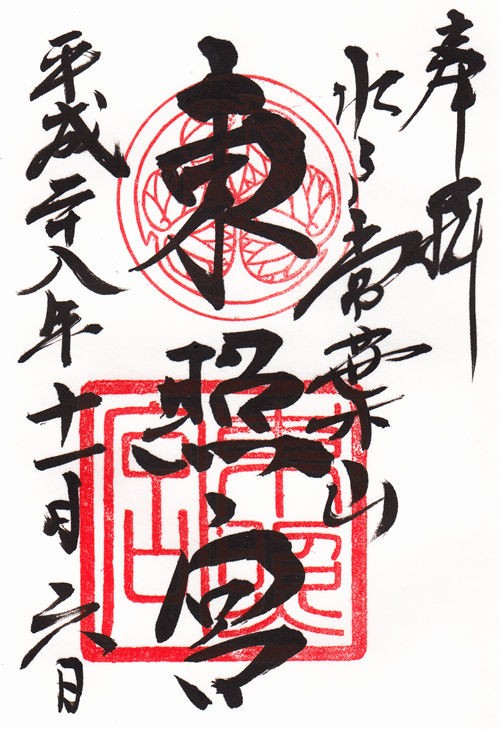 奉拝
水戸常葉山
東照宮
平成二十八年十一月六日